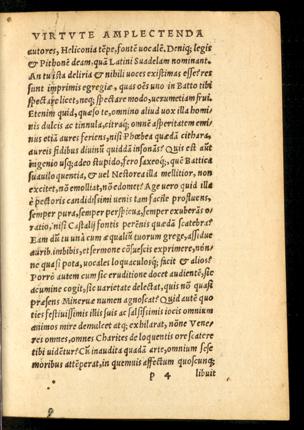 VIRTVTE AMPLECTENDA
autores, Heliconia tẽpe, fontẽ uocalẽ. Deniq; legis
& Pithonẽ deam, quã Latini Suadelam nominant.
An tu ista deliria & nihili uoces existimas esse? res
sunt imprimis egregiæ, quas oẽs uno in Batto tibi
spectare licet, neq; spectare modo, uerumetiam frui.
Etenim quid, quæso te, omnino aliud uox illa homi
nis dulcis ac tinnula, citraq; omnẽ asperitatem emi-
nus etiã aures feriens, nisi Phœbea quædã cithara,
aureis fidibus diuinũ quiddã insonãs? Quis est aũt
ingenio usq; adeo stupido, fero saxeoq;, quẽ Battica
suauiloquentia, & uel Nestorea illa mellitior, non
excitet, nõ emolliat, nõ edomet? Age uero quid illa
è pectoris candidissimi uenis tam facile profluens,
semper pura, semper perspicua, semper exuberãs o-
ratio, nisi Castalij fontis perẽnis quædã scatebra?
Eam dũ tu unà cum æqualiũ tuorum grege, assidue
aurib. imbibis, et sermone cõsuescis exprimere, nũn-
ne quasi pota, uocales loquaculosq; facit & alios?
Porrò autem cum sic eruditione docet audientẽ, sic
acumine cogit, sic uarietate delectat, quis nõ quasi
præsens Mineruæ numen agnoscat? Quid autẽ quo
ties festiuissimis illis suis ac salsissimis iocis omnium
animos mire demulcet atq; exhilarat, nõne Vene-
res omnes, omnes Charites de loquentis ore scatere
tibi uidẽtur? Cũ inaudita quadã arte, omnium sese
moribus attẽperat, in quemuis affectum quoscunq;
P 4
libuit